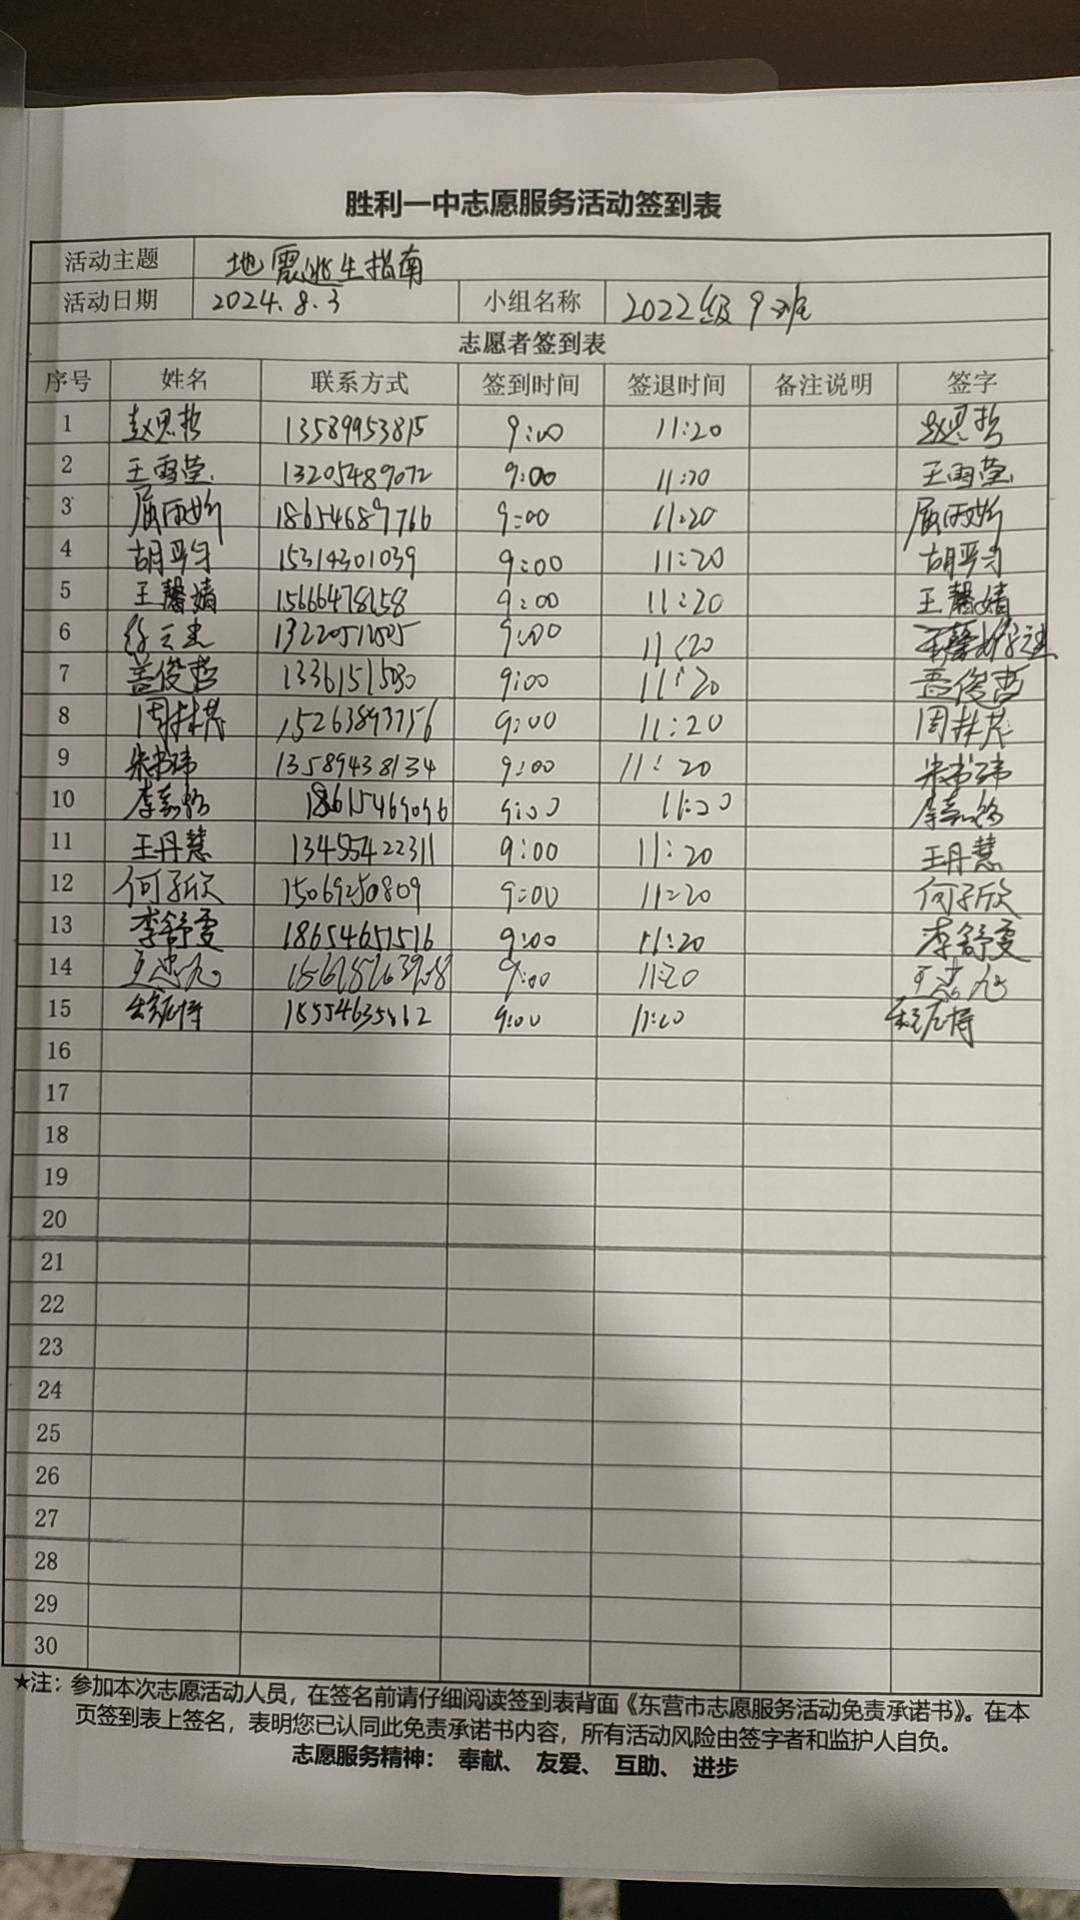 胜利一中志愿服务活动签到表
活动主题 地震逃生指南
活动日期 2024.8.3 小组名称 2022级9班
志愿者签到表
序号 姓名 联系方式 签到时间 签退时间 备注说明 签字
1 赵思哲 13589953815 9:00 11:20 赵思哲
2 王雪莹 13205489072 9:00 11:20 王雪莹
3 屈雨昕 18654689766 9:00 11:20 屈雨昕
4 15314301039 9:00 11:20
5 王馨婧 15666478158 9:00 11:20 王馨婧
6 9:00 11:20
7 盖俊哲 9:00 11:20 盖俊哲
8 周林茂 15263893756 9:00 11:20 周林茂
9 朱书玮 13589438134 9:00 11:20 朱书玮
10 李嘉铭 18615469096 9:00 11:20 李嘉铭
11 王丹慧 13455422311 9:00 11:20 王丹慧
12 何子欣 15069250809 9:00 11:20 何子欣
13 李舒雯 18654651516 9:00 11:20 李舒雯
14 9:00 11:20
15 9:00 11:20
16
17
18
19
20
21
22
23
24
25
26
27
28
29
30
★注：参加本次志愿活动人员，在签名前请仔细阅读签到表背面《东营市志愿服务活动免责承诺书》。在本
页签到表上签名，表明您已认同此免责承诺书内容，所有活动风险由签字者和监护人自负。
志愿服务精神： 奉献、 友爱、 互助、 进步